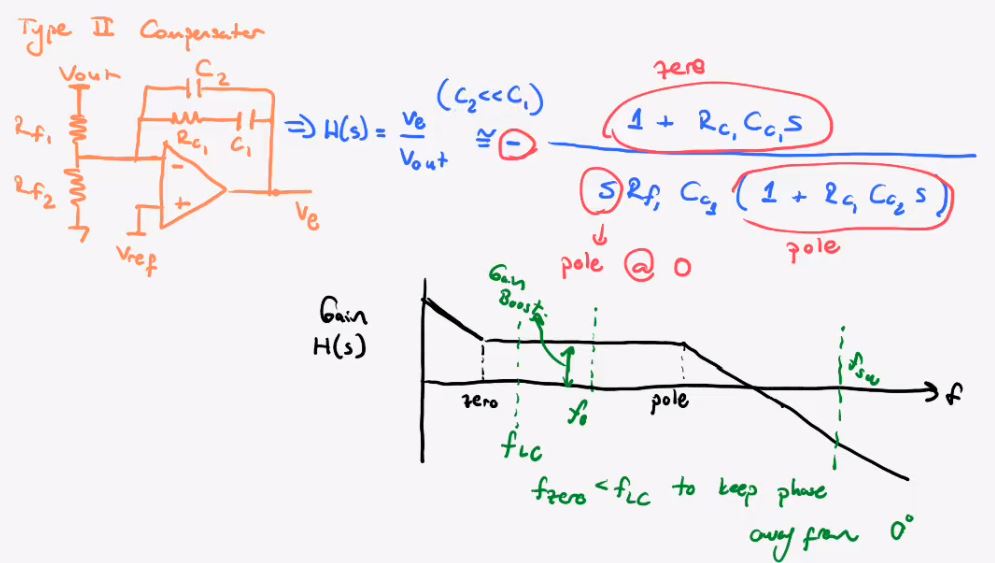 Type II Compensater
Vout
C2
Rf1
Rc1 C1
Rf2
-
+
Vref
Ve
⇒ H(s) = Ve / Vout
(C2 << C1)
≅ -
zero
1 + Rc1 Cc1 s
s Rf1 Cc1 (1 + Rc1 Cc2 s)
pole @ 0
pole
Gain
H(s)
Gain
Boost
zero
fLC
fo
pole
fsw
f
fzero < fLC to keep phase
away from 0°